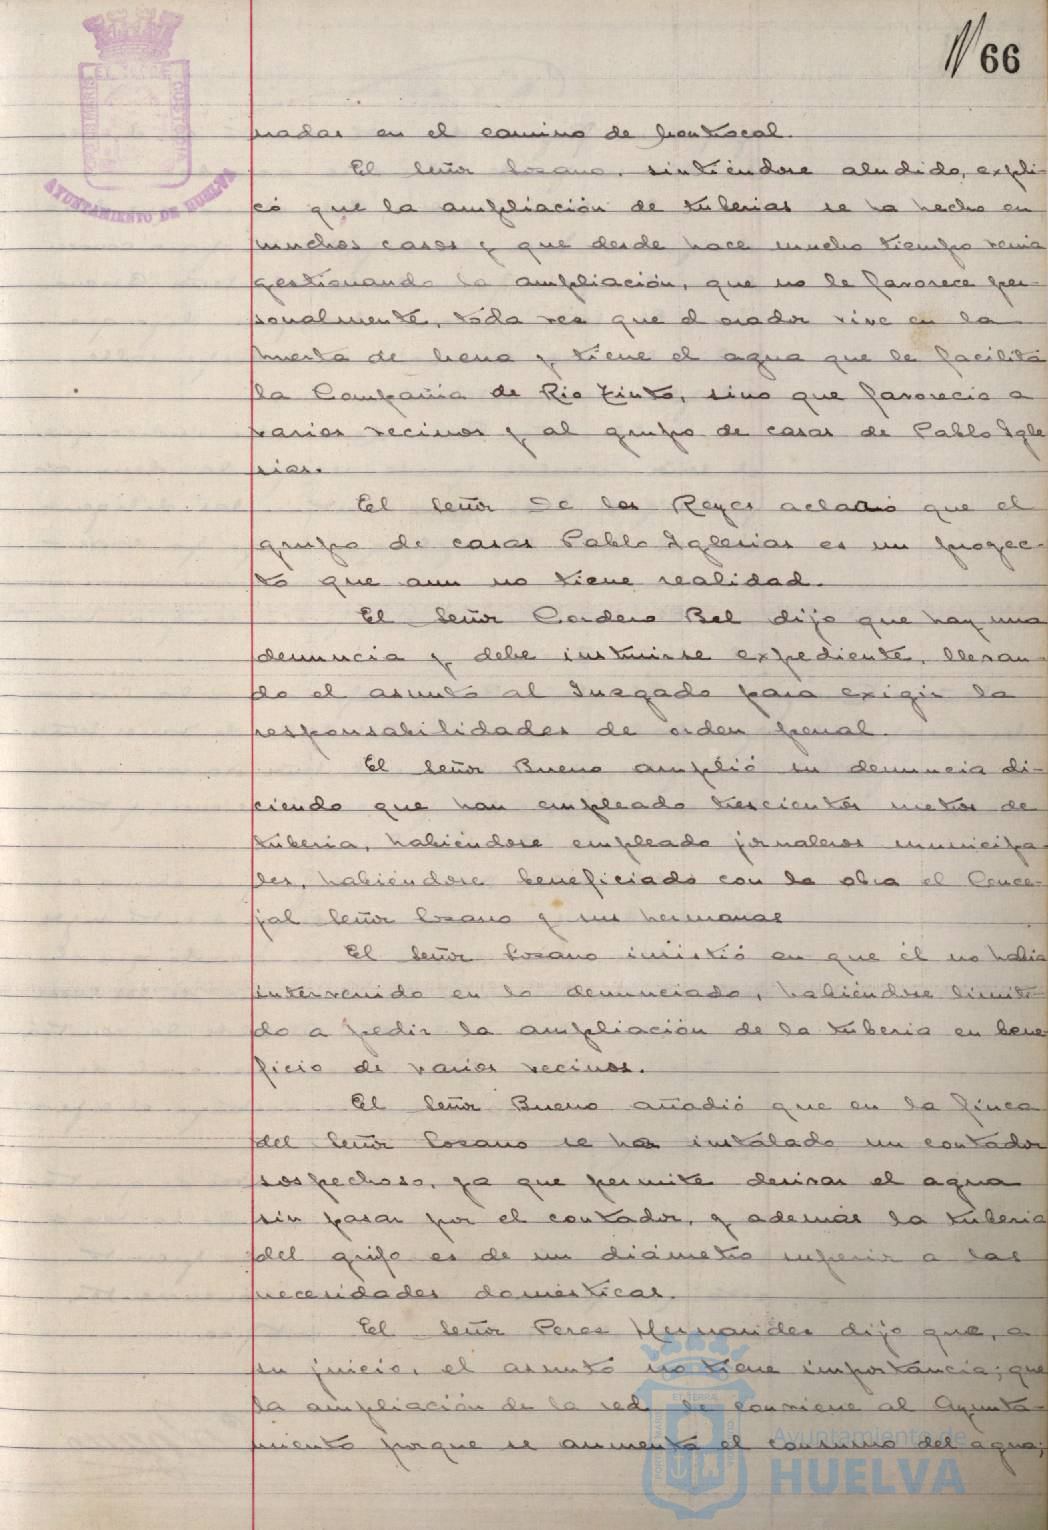 66
nadas en el camino de
El Señor Lozano, sintiéndose aludido, expli-
có que la ampliación de tuberias se ha hecho en
muchos casos y que desde hace mucho tiempo venia
gestionando la ampliación, que no le favorece per-
sonalmente, toda vez que el orador vive en la
huerta de Mena y tiene el agua que le facilita
la Compañia de Rio Tinto, sino que favorecia a
varios vecinos y al grupo de casas de Pablo Igle
sias.
El Señor De los Reyes aclaró que el
grupo de casas Pablo Iglesias es un proyec-
to que aun no tiene realidad.
El Señor Cordero Bel dijo que hay una
denuncia y debe instruirse expediente, llevan-
do el asunto al Juzgado para exigir la
responsabilidades de orden penal.
El Señor Bueno amplió su denuncia di-
ciendo que han empleado trescientos metros de
tuberia, habiéndose empleado jornaleros municipa-
les, habiéndose beneficiado con la obra el Conce-
jal Señor Lozano y sus hermanas
El Señor Lozano insistió en que él no habia
intervenido en lo denunciado, habiéndose limita-
do a pedir la ampliación de la tuberia en bene-
ficio de varios vecinos.
El Señor Bueno añadió que en la finca
del Señor Lozano se ha instalado un contador
sospechoso, ya que permite desviar el agua
sin pasar por el contador, y además la tuberia
del grifo es de un diámetro superior a las
necesidades domésticas.
El Señor Perez Hernandez dijo que, a
su juicio, el asunto no tiene importancia; que
la ampliación de la red le conviene al Ayunta-
miento porque se aumenta el consumo del agua;
AYUNTAMIENTO DE HUELVA
Ayuntamiento de
HUELVA